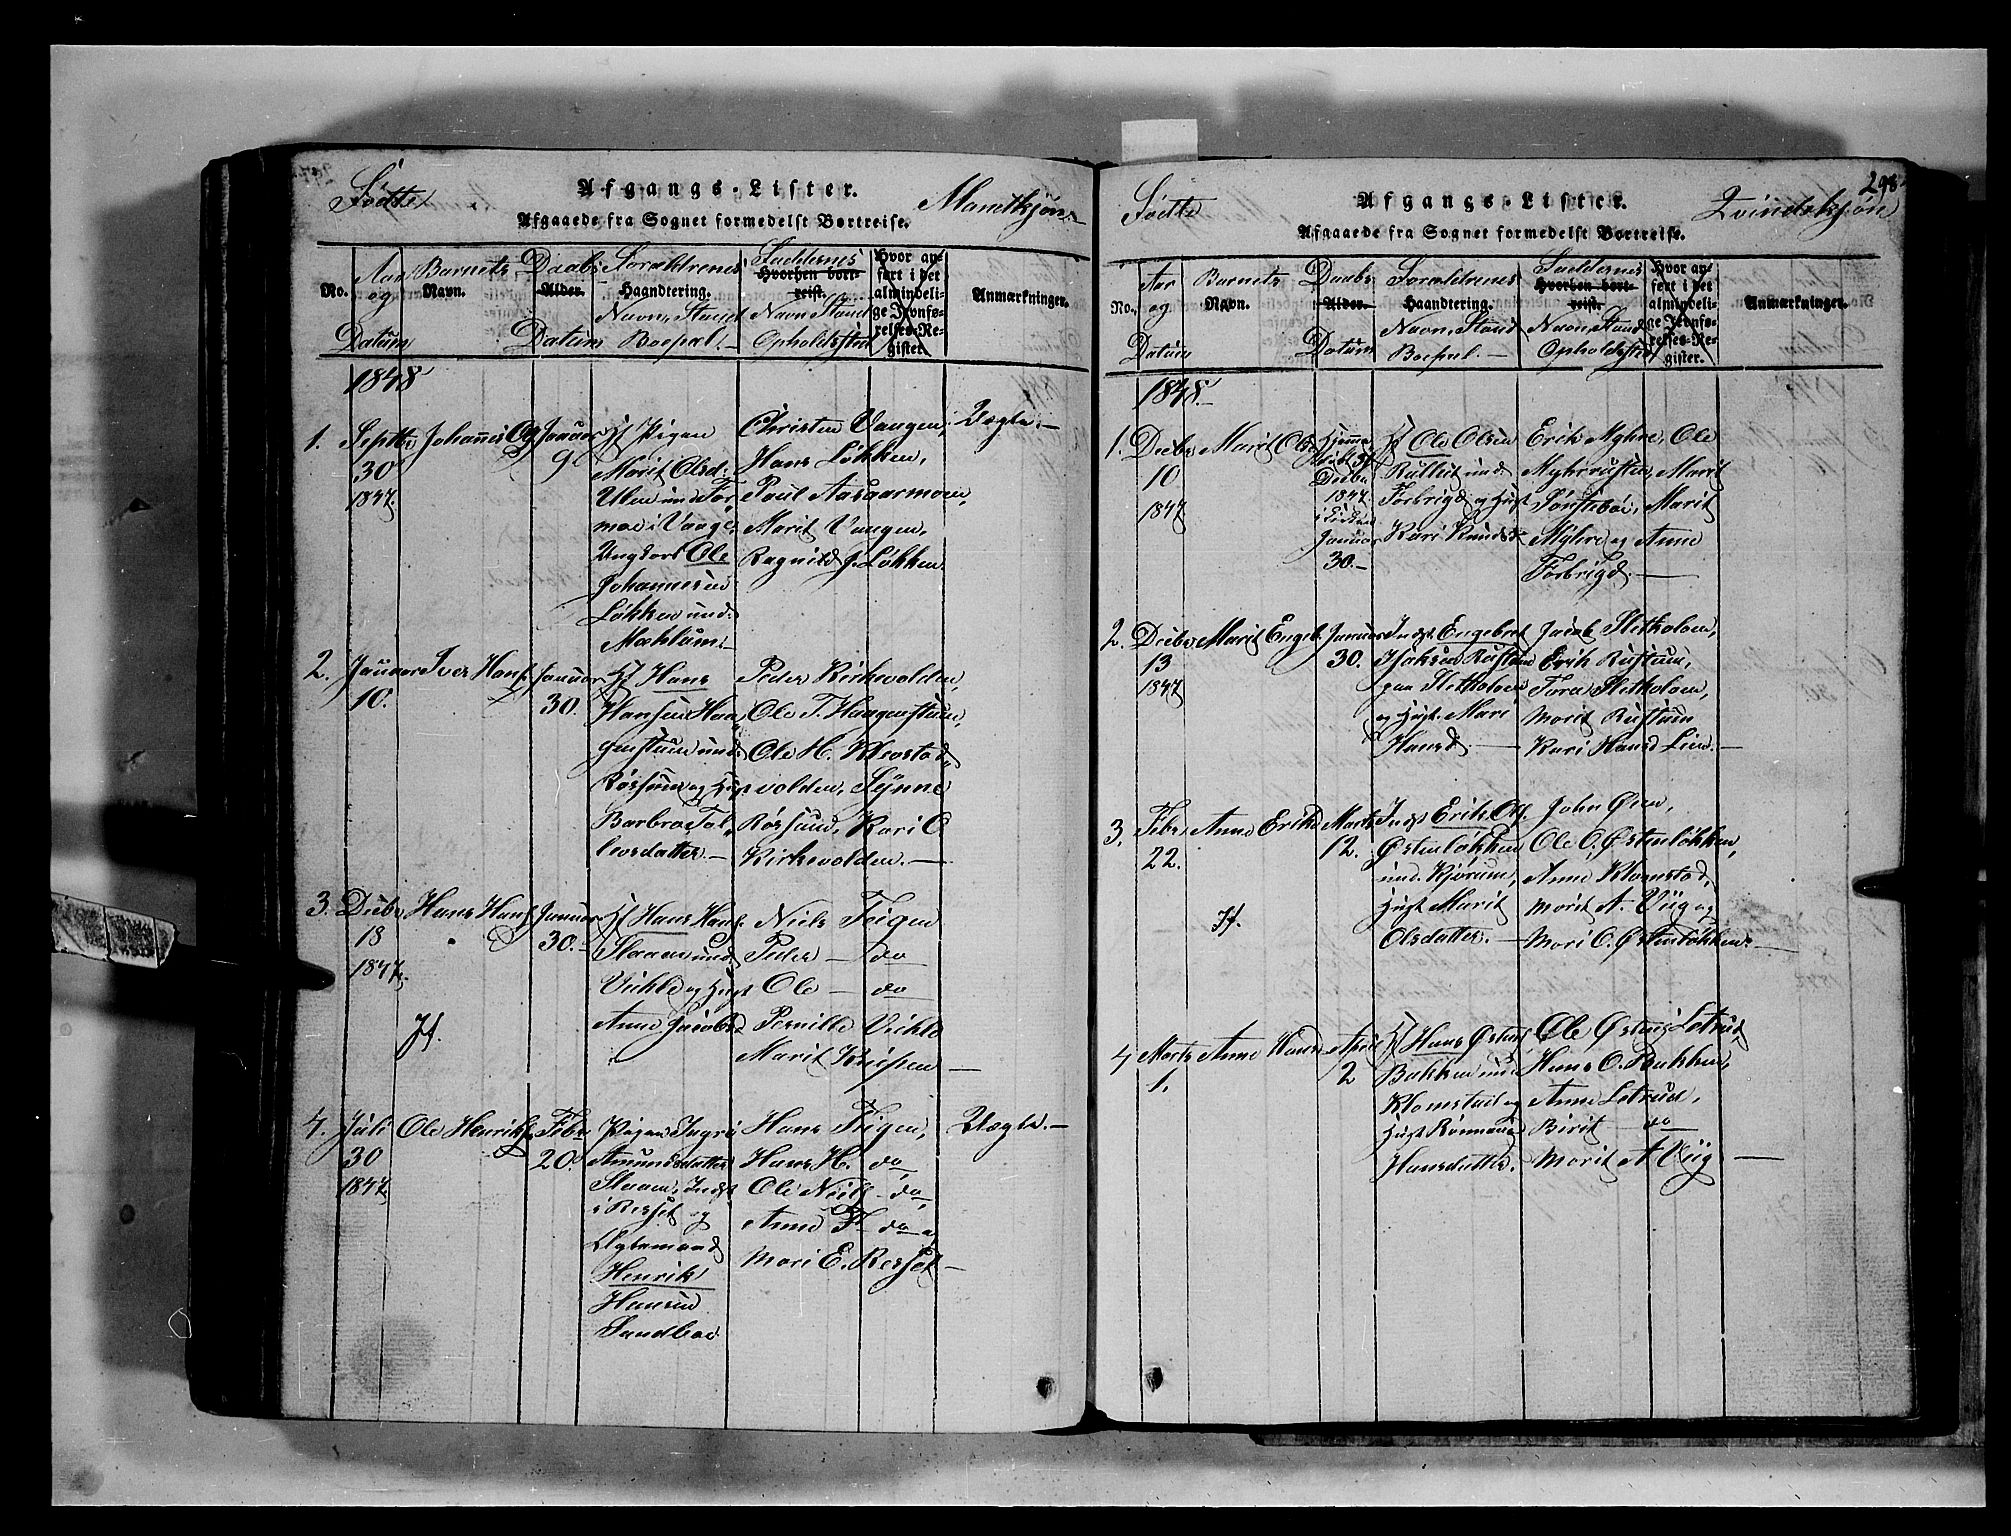 Födte
Afgangs-Lister.
Mandkjøn
Afgaaede fra Sognet formedelst Bortreise.
No.
Aar og Datum
Barnets Navn.
Daabs Alder. Datum
Forældrenes Haandtering. Navn, Stand Boepæl.
Faddernes Hvorhen bortreist. Navn Stand Opholdssted
Hvor anført i det almindelige Jevnførelses-Register.
Anmærkninger.
1848
1. Septbr 30 1847.
Johannes Ols
Januar 9
Pigen
Marit Olsd.
Ulen und. For
moe i Vaage,
Ungkarl Ole
Johannesen
Løkken und.
Mæhlum
Christen Vangen,
Hans Løkken,
Paul Aasaarmoen,
Marit Vangen,
Ragnild J. Løkken
Uægte.
2. Januar 10.
Iver Hans.
Januar 30.
Hans
Hansen Haa
genstuen und.
Røssum og Hust
Barbro Tol
levsdatter
Peder Kirkevolden,
Ole T. Haagenstuen,
Ole H. Klevstad
volden, Synne
Røssum, Kari O
Kirkevolden.
3. Decbr 18 1847.
Hans Hans.
Januar 30.
Hans Hans.
Slaaen und.
Vichle og Hust
Anne Jacobsd
Niels Teigen
Peder do
Ole do
Pernille Vichle
Marit
4. Juli 30 1847
Ole Henriks
Febr 20.
Pigen Ingri
Amundsdatter
Slaaen, Indst
i Resset og
Ægtemand
Henrik
Hansen
Sandboe
Hans Teigen,
Hans H. do
Ole Niels do,
Anne T. do og
Mari E. Resset
Uægte.
298
Födte
Afgangs-Lister.
Qvindekjøn
Afgaaede fra Sognet formedelst Bortreise.
No.
Aar og Datum
Barnets Navn.
Daabs Alder. Datum
Forældrenes Haandtering. Navn, Stand Boepæl.
Faddernes Hvorhen bortreist. Navn, Stand Opholdssted
Hvor anført i det almindelige Jevnførelses-Register.
Anmærkninger.
1848.
1. Decbr 10 1847
Marit Olsd
Hjemme
Decbr
1847.
i Kirken
Januar
30.
Ole Olsen
und.
Forbrigd og Hust
Kari Knudsd.
Erik Myhre, Ole
Myhrstuen, Marit
Sønsteboe, Marit
Myhre og Anne
Forbrigd.
2. Decbr 13 1847
Marit Engeb.
Januar 30.
Inds. Engebret
Isaksen Rustuen
paa Sletholen
og Hust. Mari
Hansd
Jacob Sletholen,
Erik Rustuen,
Tora Sletholen,
Marit Rustuen
Kari Hansd Lien.
3. Febr. 22.
Anne Eriksd
Marts 12.
Inds Erik Ols.
Østenløkken
und. Kjørum,
Hust Marit
Olsdatter.
John Øien,
Ole O. Østenløkken,
Anne Klomstad,
Marit A. Viig og
Mari O. Østenløkken.
4. Marts 1.
Anne Hansd
April 2
Hans Østens
Bakken und
Klomstad og
Hust Rønnaug
Hansdatter.
Ole Østens Letrud,
Hans O. Bakken,
Anne Letrud,
Birit do
Marit A Viig